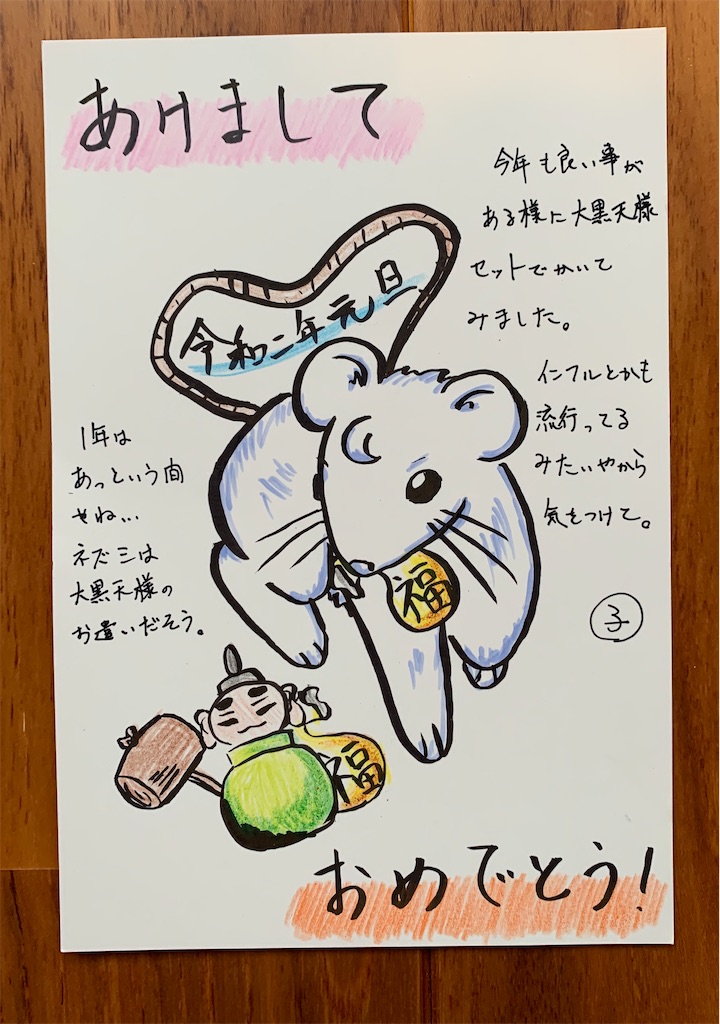 あけまして
今年も良い事が
ある様に大黒天様
セットでかいて
みました。
令和二年元旦
インフルとかも
流行ってる
みたいやから
気をつけて。
1年は
あっという間
やね…
ネズミは
大黒天様の
お遣いだそう。
福
子
福
おめでとう!